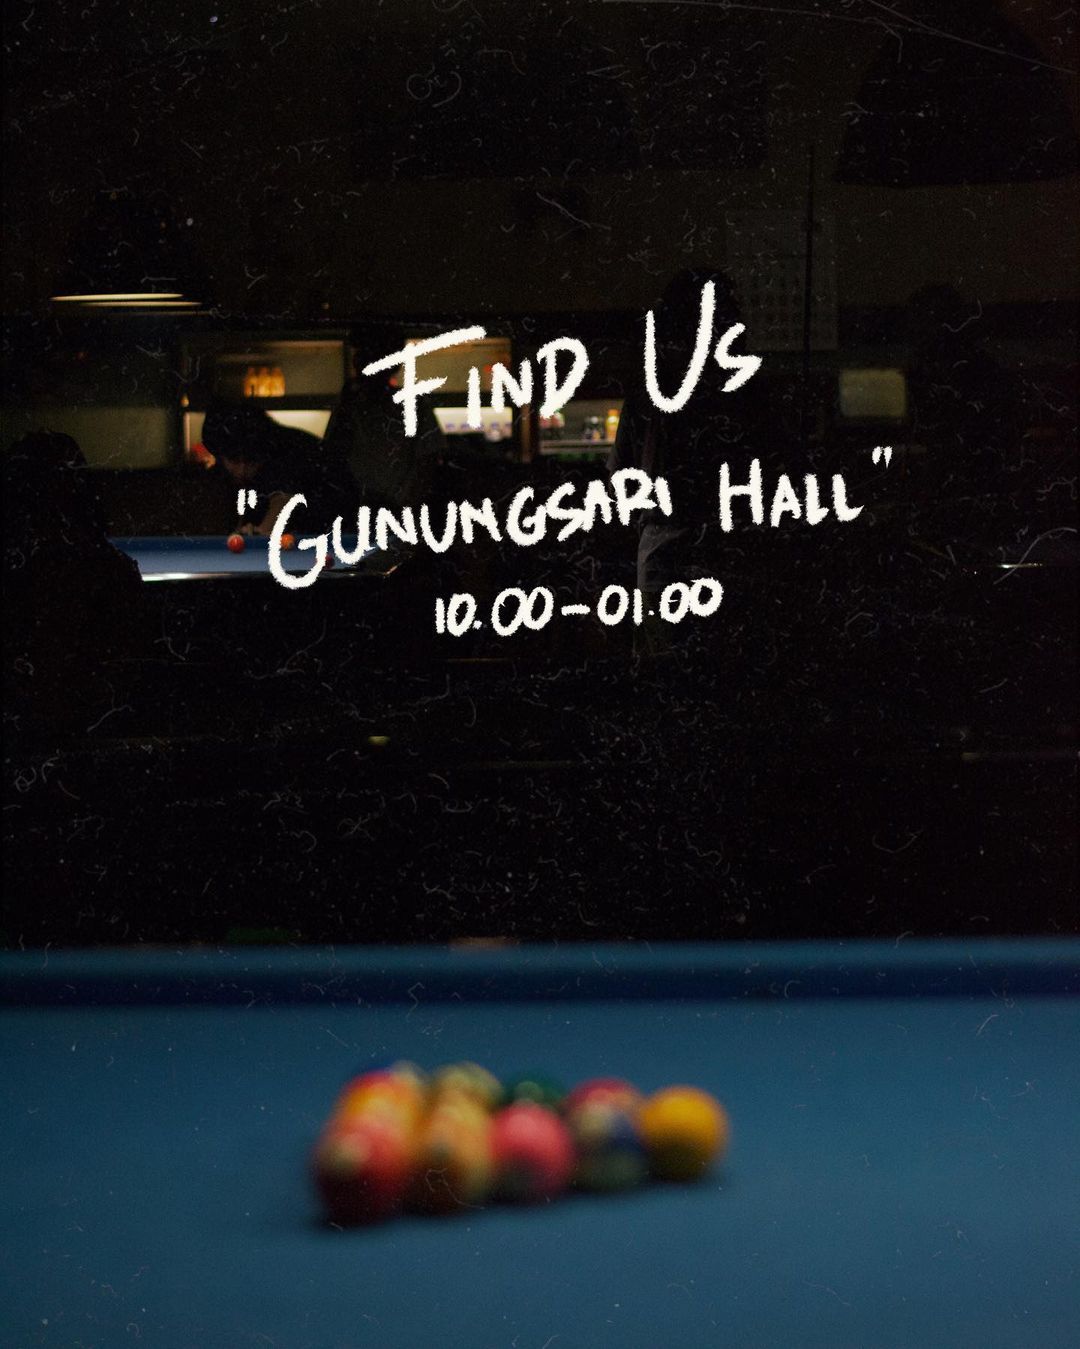 Find Us
"Gunungsari Hall"
10.00-01.00